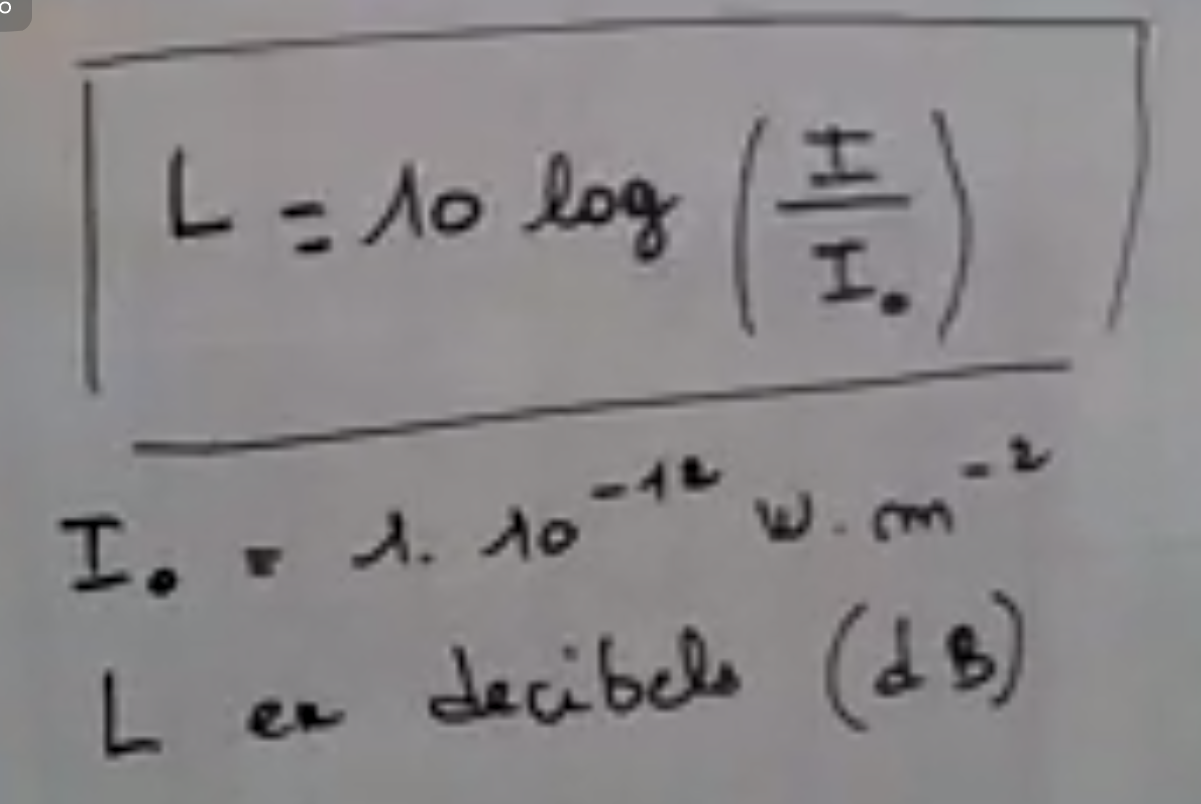 L = 10 log (I/I₀)
I₀ = 1. 10⁻¹² w. m⁻²
L en decibels (dB)